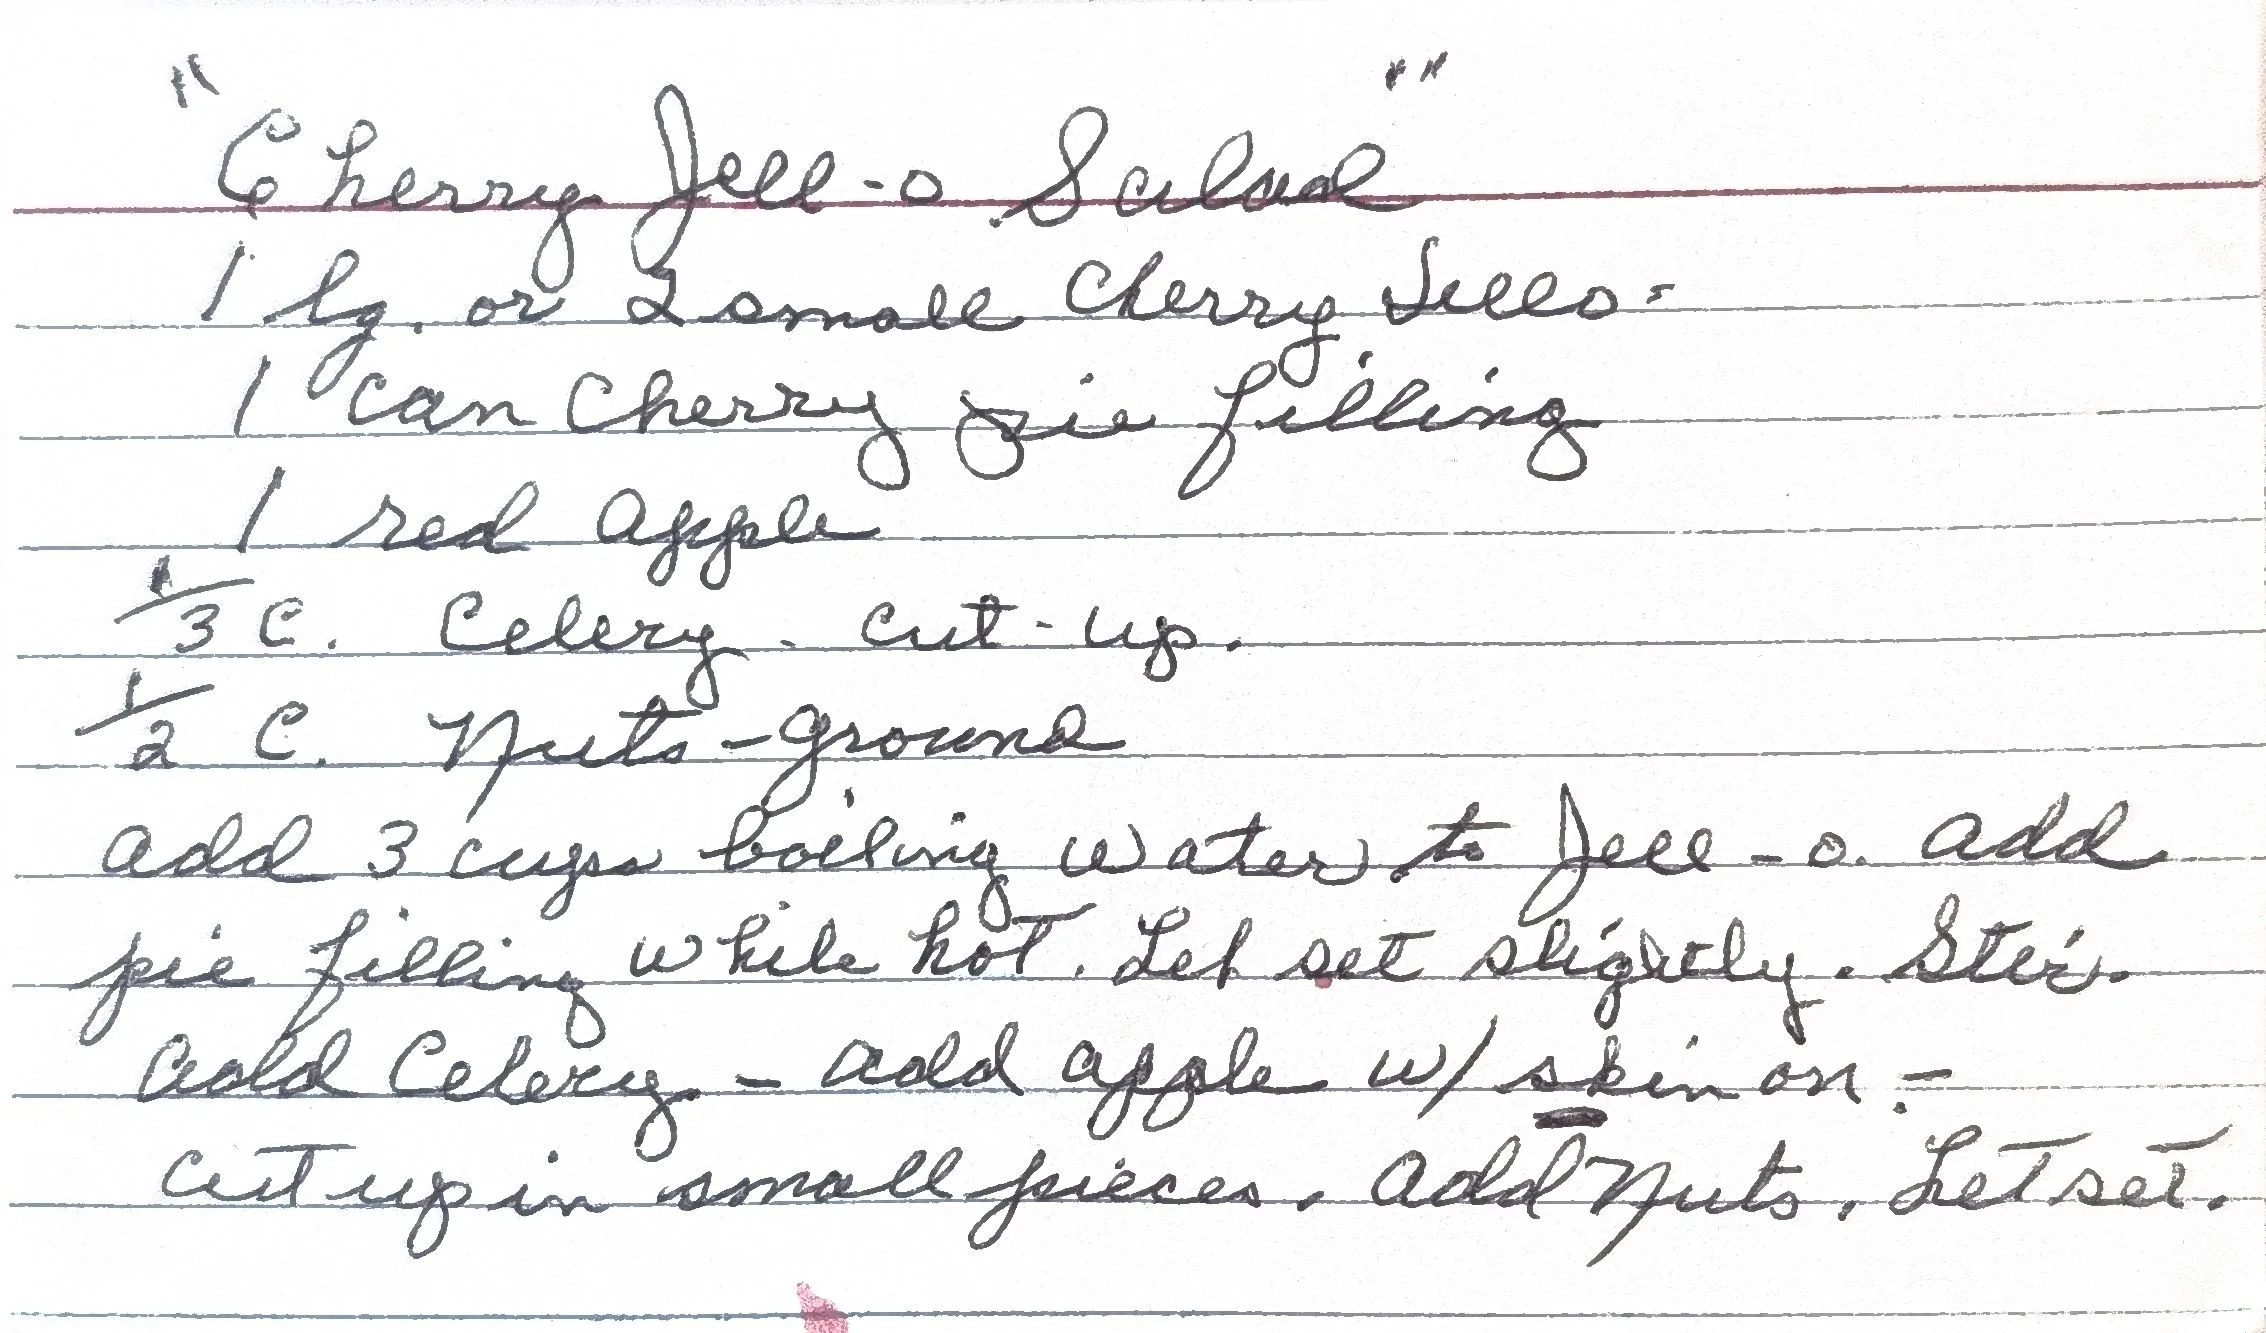 "Cherry Jell-o Salad"
1 lg. or 2 small Cherry Jello-
1 can Cherry pie filling
1 red apple
1/3 C. Celery - cut-up.
1/2 C. Nuts-ground
add 3 cups boiling water to Jell-o. add
pie filling while hot. Let set slightly. Stir.
add Celery - add apple w/ skin on. -
cut up in small pieces. add Nuts. Let set.